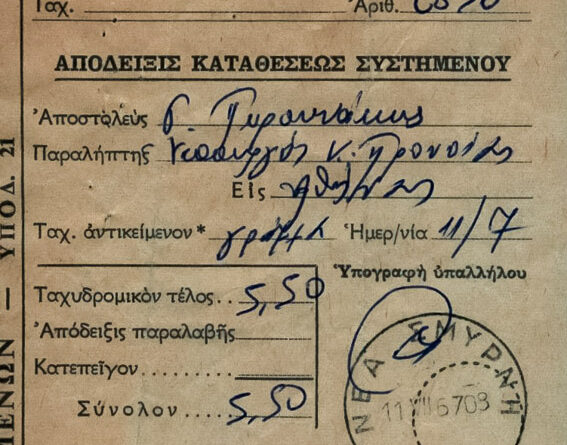 Ταχ. Ἀριθ.
ΑΠΟΔΕΙΞΙΣ ΚΑΤΑΘΕΣΕΩΣ ΣΥΣΤΗΜΕΝΟΥ
Ἀποστολεὺς Γ.
Παραλήπτης Ὑπουργός Κ. Προνοίας
Εἰς Ἀθήνας
Ταχ. ἀντικείμενον * γράμμα Ἡμερ/νία 11/7
Ὑπογραφὴ ὑπαλλήλου
Ταχυδρομικὸν τέλος.. 5,50
Ἀπόδειξις παραλαβῆς
Κατεπεῖγον
Σύνολον 5,50
ΝΕΑ ΣΜΥΡΝΗ
11 VII 67 08
ΜΕΝΩΝ — ΥΠΟΔ. 21